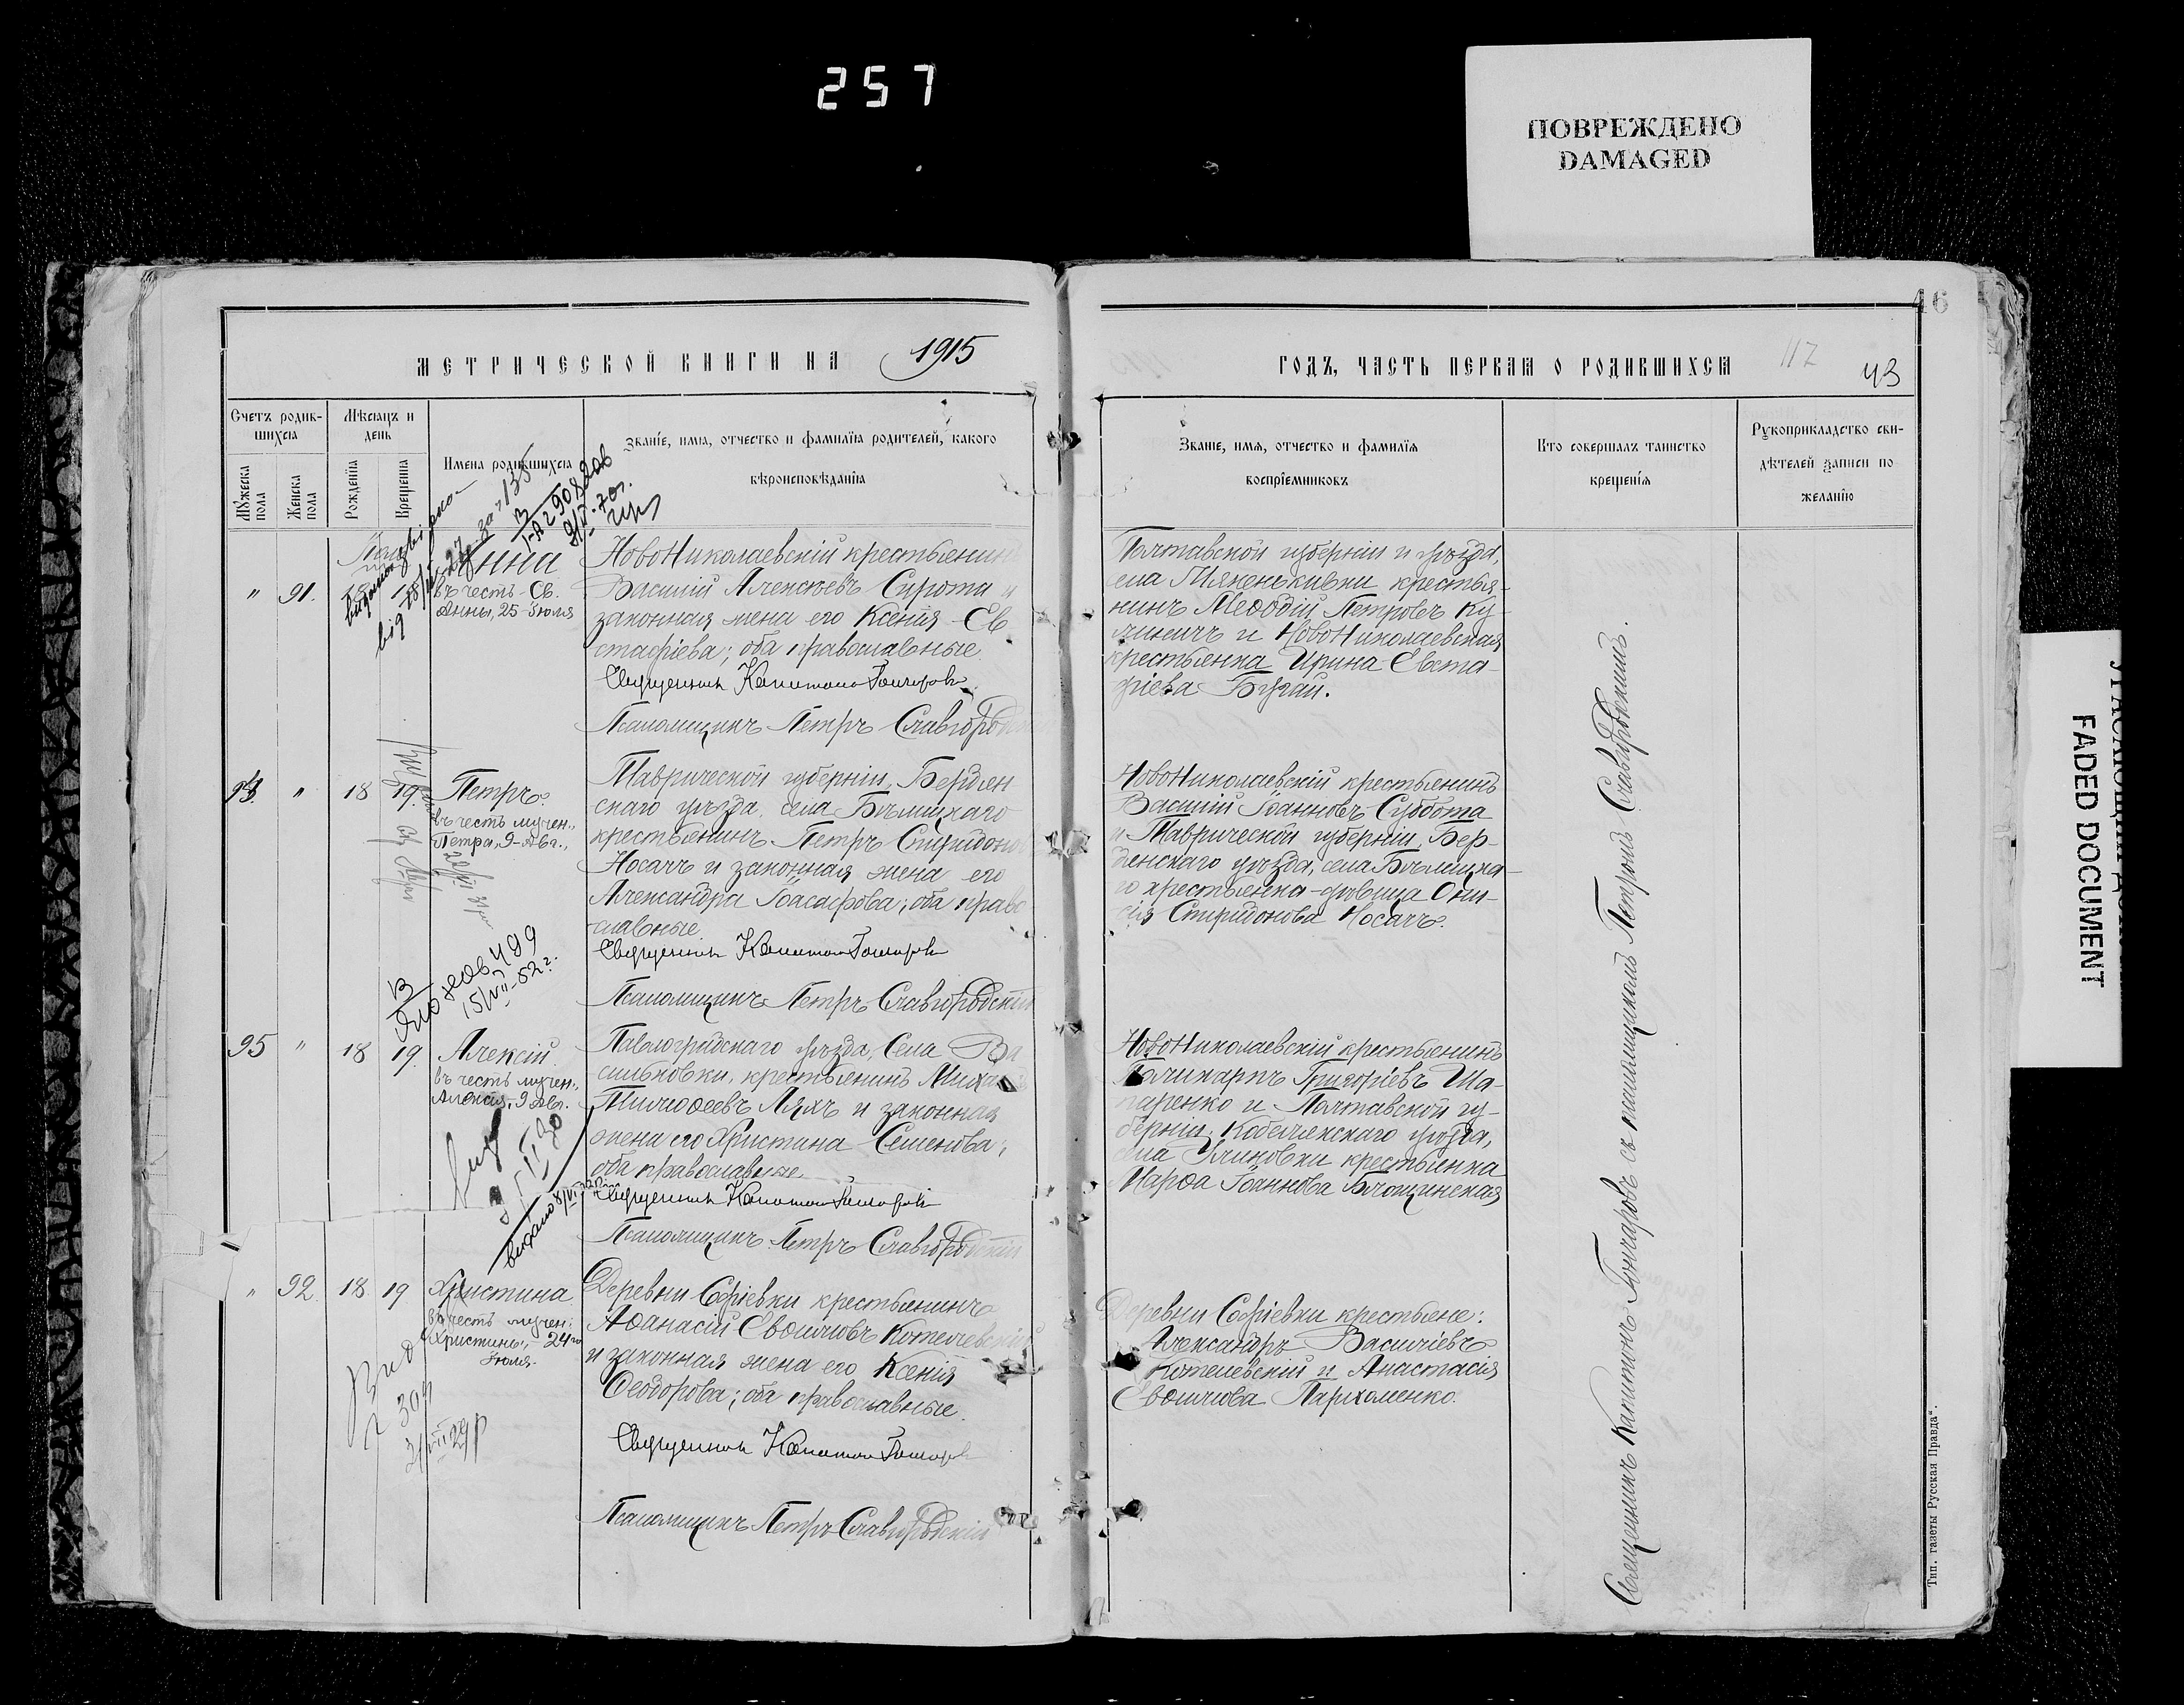 257
ПОВРЕЖДЕНО
DAMAGED
УГАСАЮЩИЙ
FADED DOCUMENT
46
МЕТРИЧЕСКОЙ КНИГИ НА 1915
ГОДЪ, ЧАСТЬ ПЕРВАЯ О РОДИВШИХСЯ
117
43
Счетъ родив-
шихся
Мѣсяцъ и
день
Мужеска
пола
Женска
пола
Рожденія
Крещенія
Имена родившихся
Званіе, имя, отчество и фамилія родителей, какого
вѣроисповѣданія
Званіе, имя, отчество и фамилія
воспріемниковъ
Кто совершалъ таинство
крещенія
Рукоприкладство сви-
дѣтелей записи по
желанію
" 91.
Анна
въ честь Св.
Анны, 25 Іюля
НовоНиколаевскій крестьянин
Василій Алексѣевъ Сирота и
законная жена его Ксенія Ев
стафіева; оба православные
Священникъ Капитонъ Гончаровъ
Псаломщикъ Петръ Славгород
Полтавской губерніи и уѣзда,
села крестья-
нинъ Меѳодій Петровъ Ку-
линичъ и НовоНиколаевская
крестьянка Ирина Евста-
фіева Бугай.
" 18 19.
Петръ
въ честь мучен.,
Петра, 9 Авг.,
Таврической губерніи, Бердян
скаго уѣзда, села Бѣлицкаго
крестьянинъ Петръ Спиридоно
Носачъ и законная жена его
Александра Іоасафова; оба право
славные
Священникъ Капитонъ Гончаровъ
Псаломщикъ Петръ Славгородскій
НовоНиколаевскій крестьянинъ
Василій Іоанновъ Суббота
и Таврической губерніи, Бер-
дянскаго уѣзда, села Бѣлицка-
го крестьянка-дѣвица Они-
сія Спиридонова Носачъ.
15/VII-52 г.
95 " 18 19.
Алексій
въ честь мучен.,
Алексія, 9 Авг.
Павлоградскаго уѣзда, Села Ва
сильковки, крестьянинъ Миха
Тимоѳеевъ Ляхъ и законная
жена его Христина Семенова;
оба православные
Священникъ Капитонъ Гончаровъ
Псаломщикъ Петръ Славгородскій
НовоНиколаевскій крестьянинъ
Поликарпъ Григоріевъ Ша-
паренко и Полтавской гу-
берніи, Кобелякскаго уѣзда,
крестьянка
Марѳа Іоаннова
" 92. 18 19
Христина
въ честь мучен.
Христины, 24го
Іюля.
Деревни Софіевки крестьянинъ
Аѳанасій Евѳиміовъ Котелевскій
и законная жена его Ксенія
Ѳеодорова; оба православные.
Священникъ Капитонъ Гончаровъ
Псаломщикъ Петръ Славгородскій
Деревни Софіевки крестьяне:
Александръ Василіевъ
Котелевскій и Анастасія
Евѳиміова Пархоменко.
Священникъ Капитонъ Гончаровъ съ псаломщикомъ Петромъ Славгородскимъ.
Тип. газеты Русская Правда".